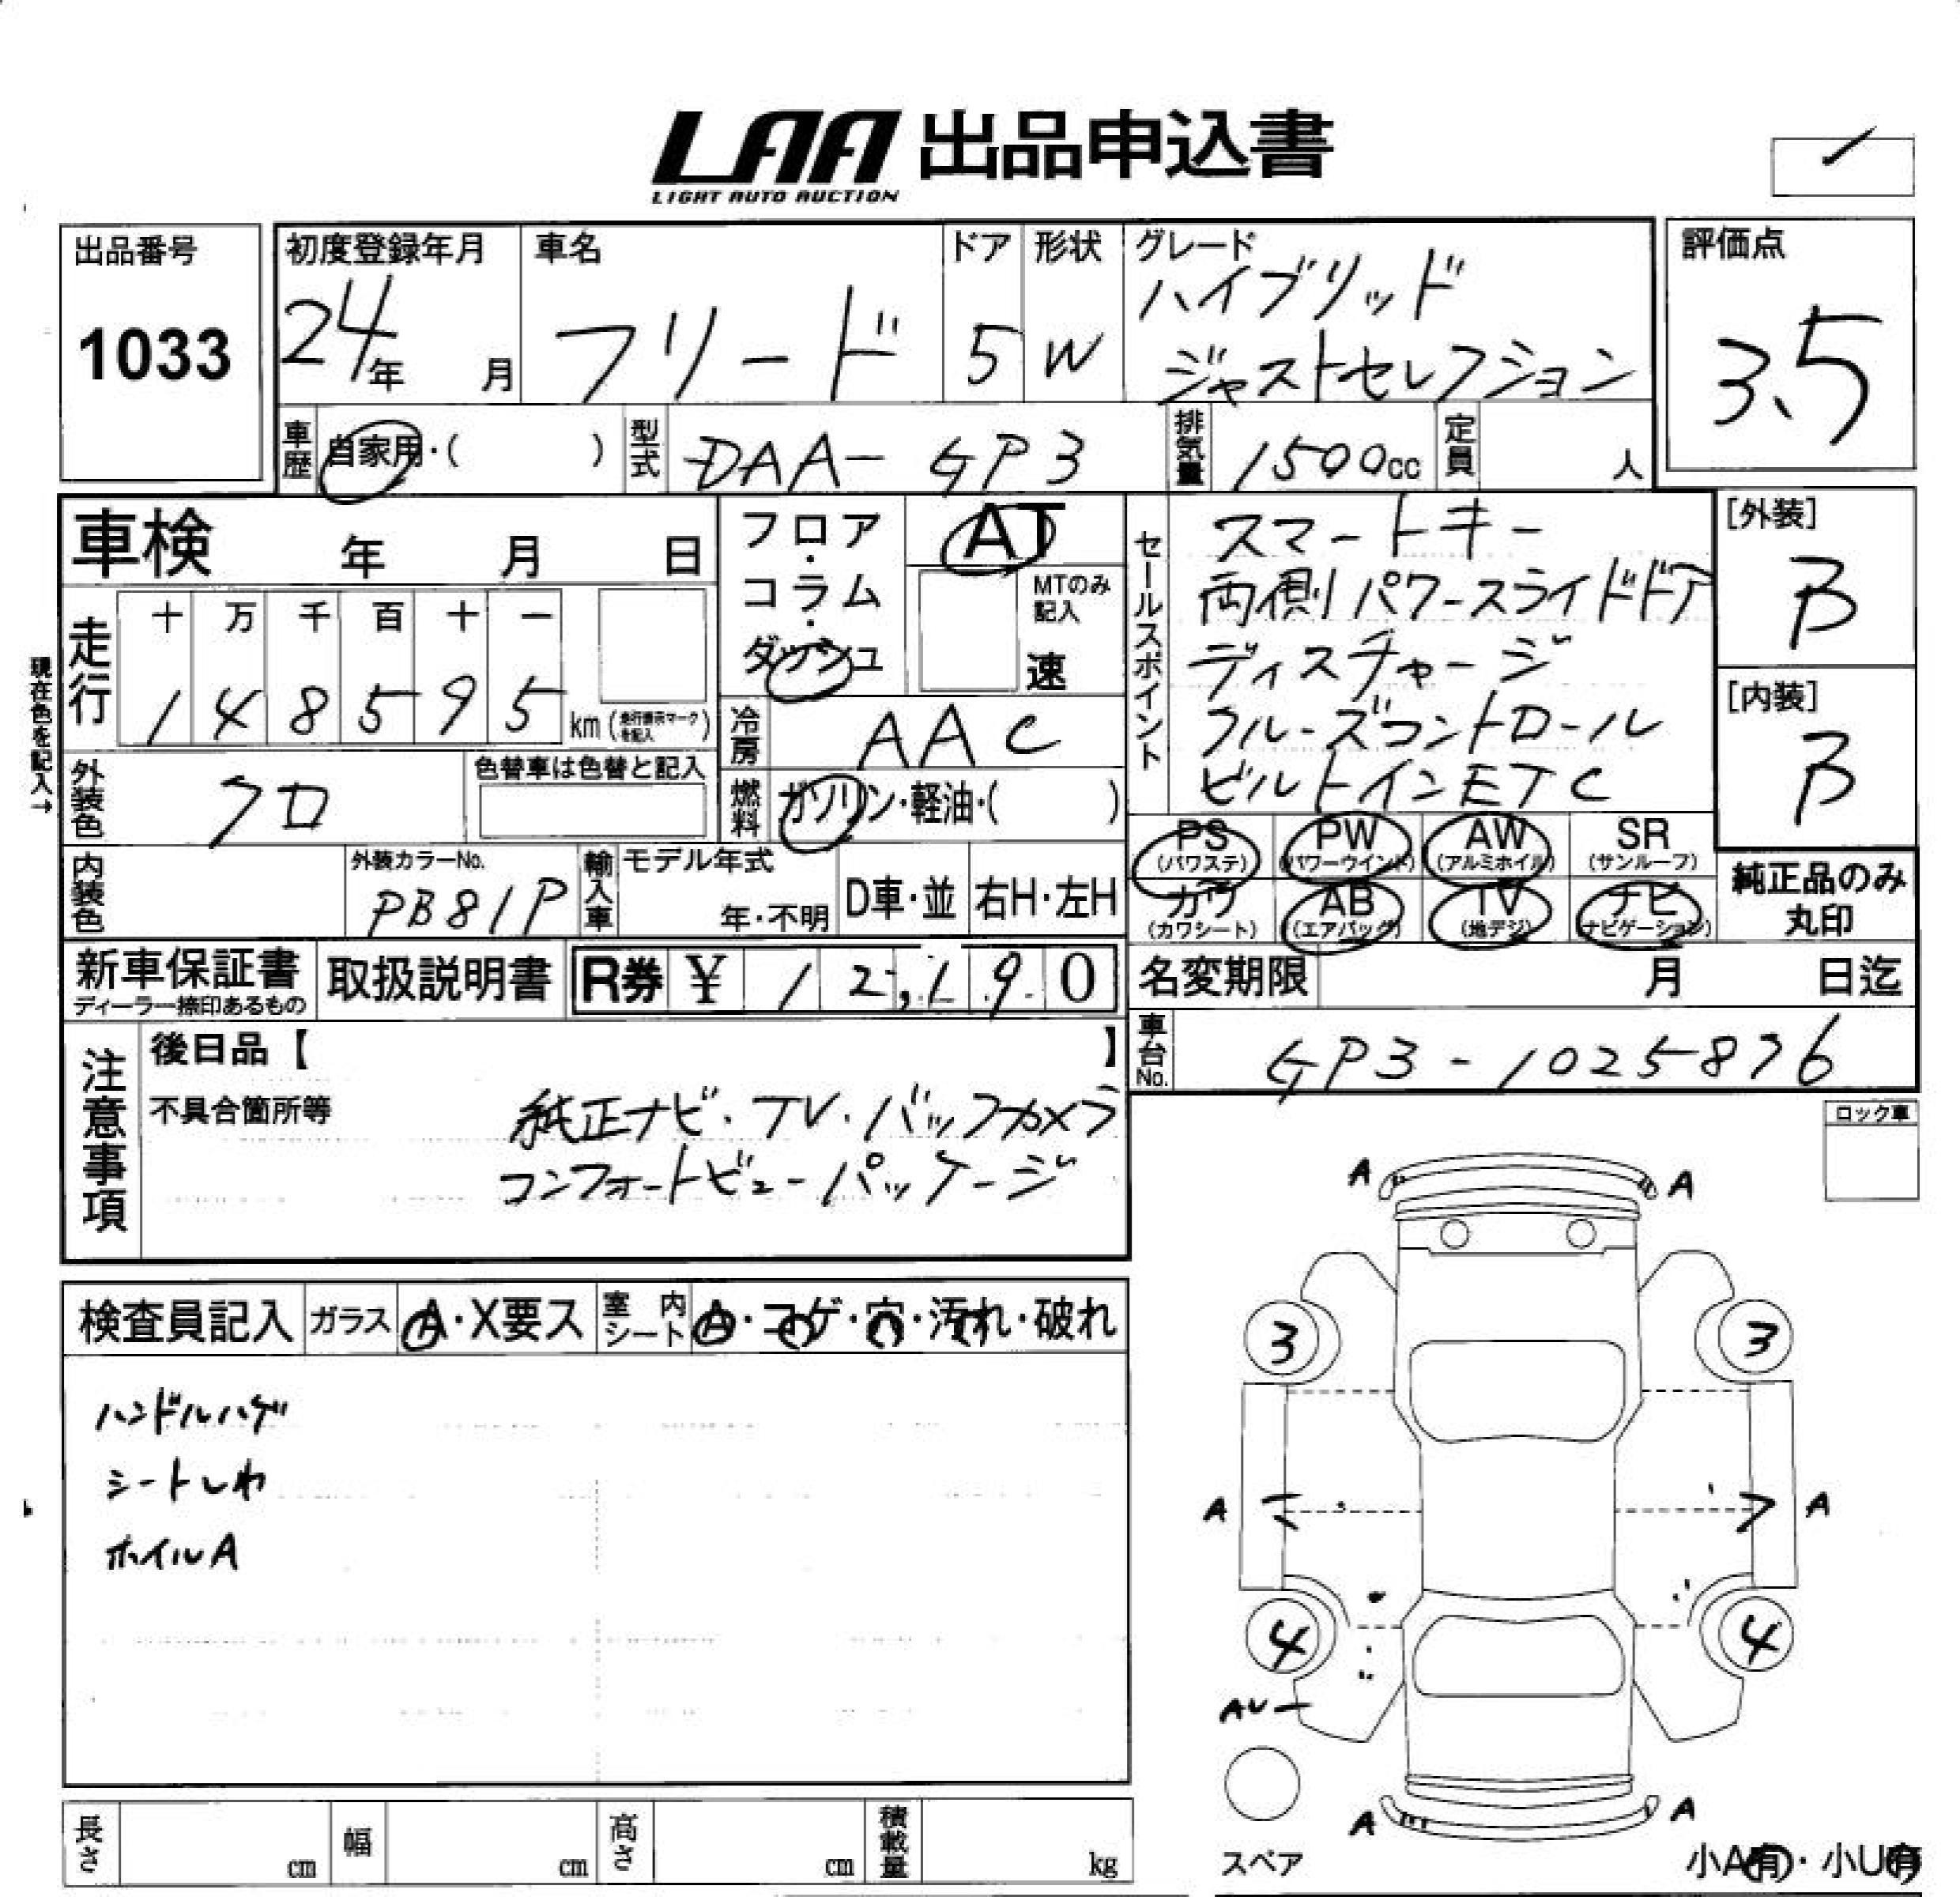 LAA 出品申込書
LIGHT AUTO AUCTION
出品番号
1033
初度登録年月
24年 月
車名
フリード
ドア
5
形状
W
グレード
ハイブリッド
ジャストセレクション
評価点
3.5
車歴 自家用・( )
型式 DAA-GP3
排気量 1500cc
定員 人
車検 年 月 日
現在色を記入→
走行
十 万 千 百 十 一
1 4 8 5 9 5 km (走行表示マークを記入)
フロア・コラム・ダッシュ
AT
MTのみ記入
速
冷房 AAC
燃料 ガソリン・軽油・( )
外装色 クロ
色替車は色替と記入
内装色
外装カラーNo.
PB81P
輸入車
モデル年式
年・不明
D車・並
右H・左H
セールスポイント
スマートキー
両側パワースライドドア
ディスチャージ
クルーズコントロール
ビルトインETC
[外装]
B
[内装]
B
PS (パワステ)
PW (パワーウインド)
AW (アルミホイル)
SR (サンルーフ)
カワ (カワシート)
AB (エアバッグ)
TV (地デジ)
ナビ (ナビゲーション)
純正品のみ
丸印
新車保証書
ディーラー捺印あるもの
取扱説明書
R券 ¥ 12,190
名変期限 月 日迄
車台No. GP3-1025876
注意事項
後日品【 】
不具合箇所等
純正ナビ・TV・バックカメラ
コンフォートビューパッケージ
ロック車
検査員記入
ガラス A・X要ス
室内シート A・コゲ・穴・汚れ・破れ
ハンドルハゲ
シートしわ
ホイルA
A A
3 3
A A
4 4
AU
A A
スペア
小A有・小U有
長さ cm
幅 cm
高さ cm
積載量 kg